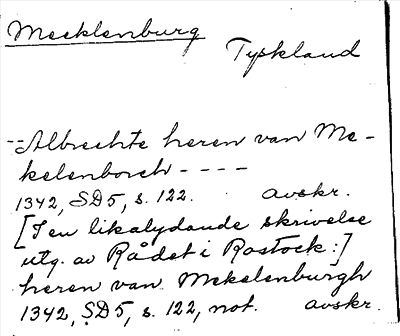 Mecklenburg
Tyskland
--Albrechte heren van Me-
kelenborch ----
1342, SD5, s. 122. avskr.
[I en likalydande skrivelse
utg. av Rådet i Rostock:]
heren van Mekelenburgh
1342, SD5, s. 122, not. avskr.